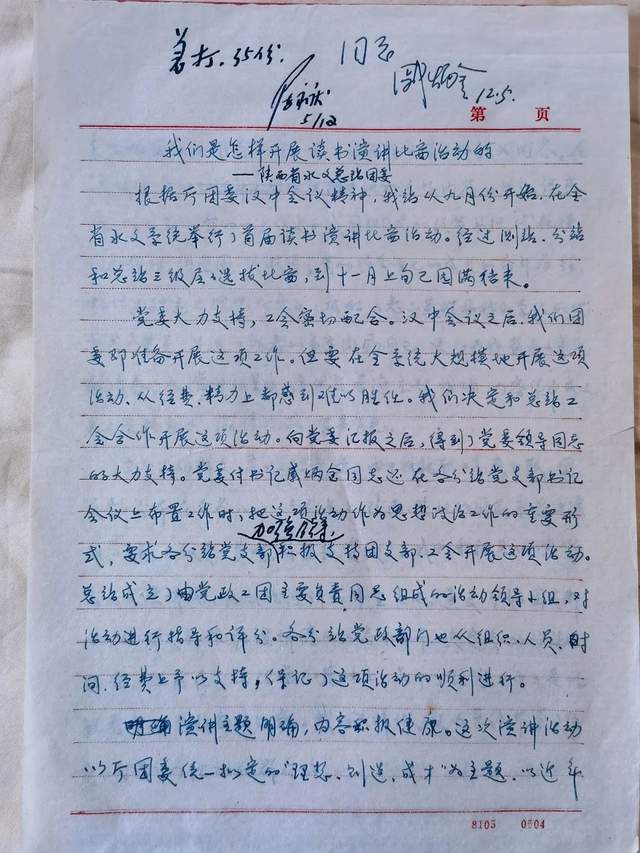 着打.35份.
同志
12.5.
5/12
第 页
我们是怎样开展读书演讲比赛活动的
——陕西省水文总站团委
根据厅团委汉中会议精神,我站从九月份开始,在全
省水文系统举行了首届读书演讲比赛活动。经过测站、分站
和总站三级层层选拔比赛,到十一月上旬已圆满结束。
党委大力支持,工会密切配合。汉中会议之后,我们团
委即准备开展这项工作。但要在全系统大规模地开展这项
活动、从经费、精力上都感到难以胜任。我们决定和总站工
会合作开展这项活动。向党委汇报之后,得到了党委领导同志
的大力支持。党委付书记戚炳全同志还在各分站党支部书记
会议上布置工作时,把这项活动作为思想政治工作的重要形
加强领导,
式,要求各分站党支部积极支持团支部、工会开展这项活动。
总站成立了由党政工团主要负责同志组成的活动领导小组,对
活动进行指导和评分。各分站党政部门也从组织、人员、时
间、经费上予以支持,保证了这项活动的顺利进行。
演讲主题明确,内容积极健康。这次演讲活动
以厅团委统一拟定的“理想、创造、成才”为主题,以近年
8105 0504